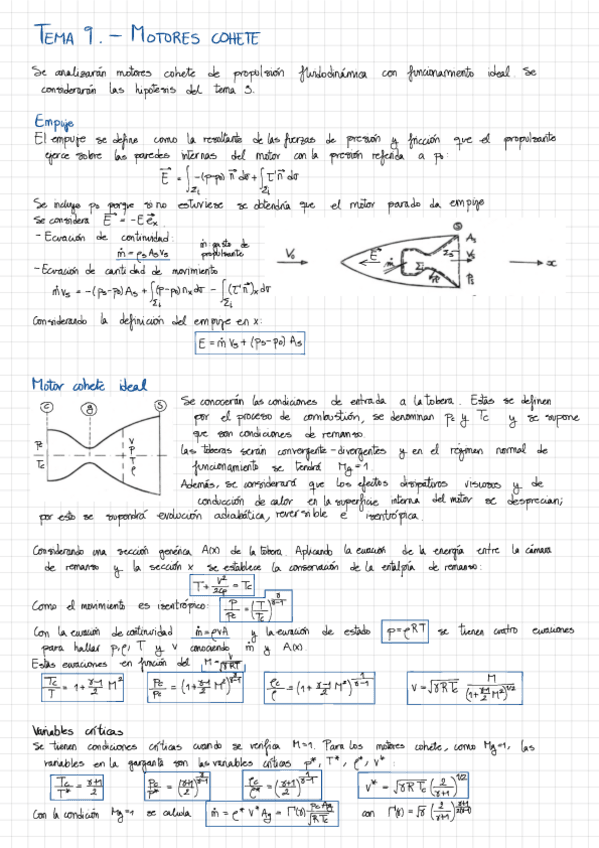 TEMA 9. – MOTORES COHETE
Se analizarán motores cohete de propulsión fluidodinámica con funcionamiento ideal. Se
considerarán las hipótesis del tema 3.
Empuje
El empuje se define como la resultante de las fuerzas de presión y fricción que el propulsante
ejerce sobre las paredes internas del motor con la presión referida a p₀:
E⃗ = ∫_Σi -(p-p₀) n⃗ dσ + ∫_Σi τ' n⃗ dσ
Se incluye p₀ porque si no estuviese se obtendría que el motor parado da empuje
Se considera E⃗ = -E e⃗x
- Ecuación de continuidad:
ṁ = ρs As Vs
ṁ: gasto de
propulsante
- Ecuación de cantidad de movimiento
ṁ vs = -(ps-p₀) As + ∫_Σi (p-p₀) nx dσ - ∫_Σi (τ' n⃗)x dσ
V₀
E⃗
ṁ
Σi
Σs
S
As
Vs
Ps
x
Considerando la definición del empuje en x:
E = ṁ Vs + (ps-p₀) As
Motor cohete ideal
C
g
S
Pc
Tc
V
P
T
ρ
Se conocerán las condiciones de entrada a la tobera. Estas se definen
por el proceso de combustión, se denominan pc y Tc y se supone
que son condiciones de remanso
Las toberas serán convergente-divergentes y en el régimen normal de
funcionamiento se tendrá Mg=1.
Además, se considerará que los efectos disipativos viscosos y de
conducción de calor en la superficie interna del motor se desprecian;
por esto se supondrá evolución adiabática, reversible e isentrópica.
Considerando una sección genérica A(x) de la tobera. Aplicando la ecuación de la energía entre la cámara
de remanso y la sección x se establece la conservación de la entalpía de remanso:
T + V²/2cp = Tc
Como el movimiento es isentrópico: P/Pc = (T/Tc)^(γ/(γ-1))
Con la ecuación de continuidad ṁ = ρvA y la ecuación de estado p = ρRT se tienen cuatro ecuaciones
para hallar p, ρ, T y v conociendo ṁ y A(x).
Estas ecuaciones en función del M = V/√(γRT)
Tc/T = 1 + (γ-1)/2 M²
Pc/P = (1 + (γ-1)/2 M²)^(γ/(γ-1))
ρc/ρ = (1 + (γ-1)/2 M²)^(1/(γ-1))
V = √(γRTc) M/(1 + (γ-1)/2 M²)^(1/2)
Variables críticas
Se tienen condiciones críticas cuando se verifica M=1. Para los motores cohete, como Mg=1, las
variables en la garganta son las variables críticas p*, T*, ρ*, v*:
Tc/T* = (γ+1)/2
Pc/P* = ((γ+1)/2)^(γ/(γ-1))
ρc/ρ* = ((γ+1)/2)^(1/(γ-1))
V* = √(γRTc) (2/(γ+1))^(1/2)
Con la condición Mg=1 se calcula ṁ = ρ* V* Ag = Γ(γ) pc Ag/√(RTc) con Γ(γ) = √γ (2/(γ+1))^((γ+1)/2(γ-1))